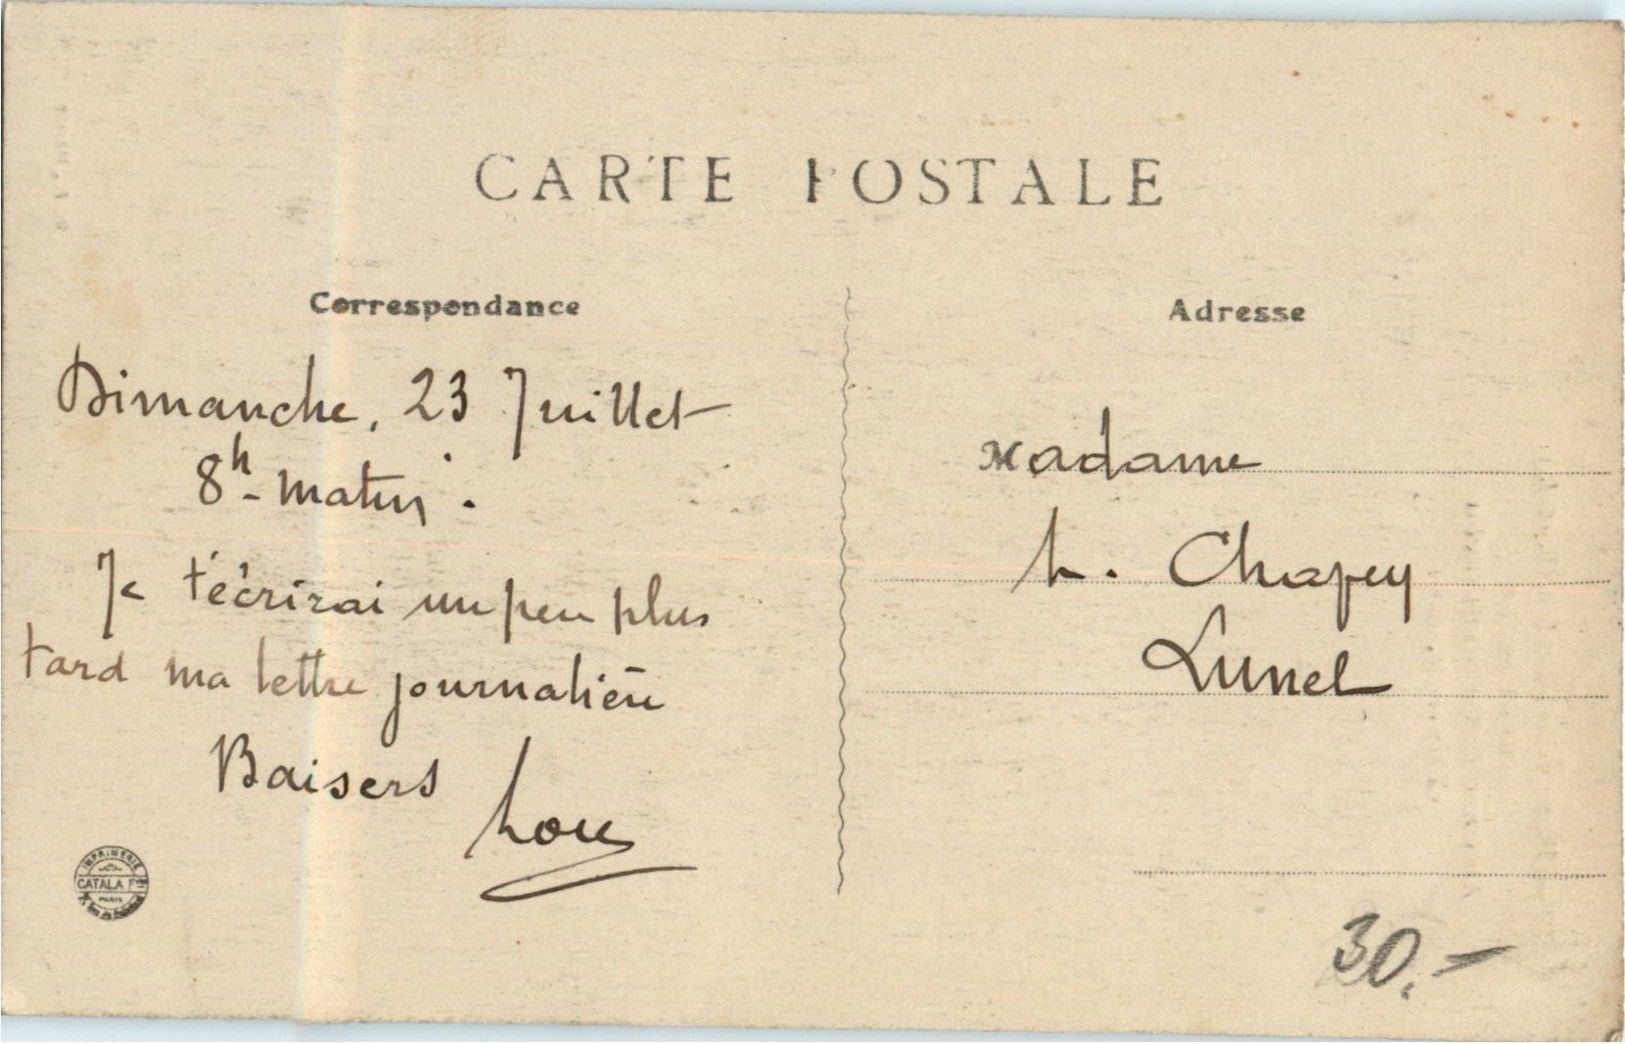 CARTE POSTALE
Correspondance
Dimanche, 23 Juillet
8h - matin.
Je t'écrirai un peu plus
tard ma lettre journalière
Baisers
Lou
IMPRIMERIE
CATALA Fres
PARIS
Adresse
Madame
L. Chapey
Lunel
30.-